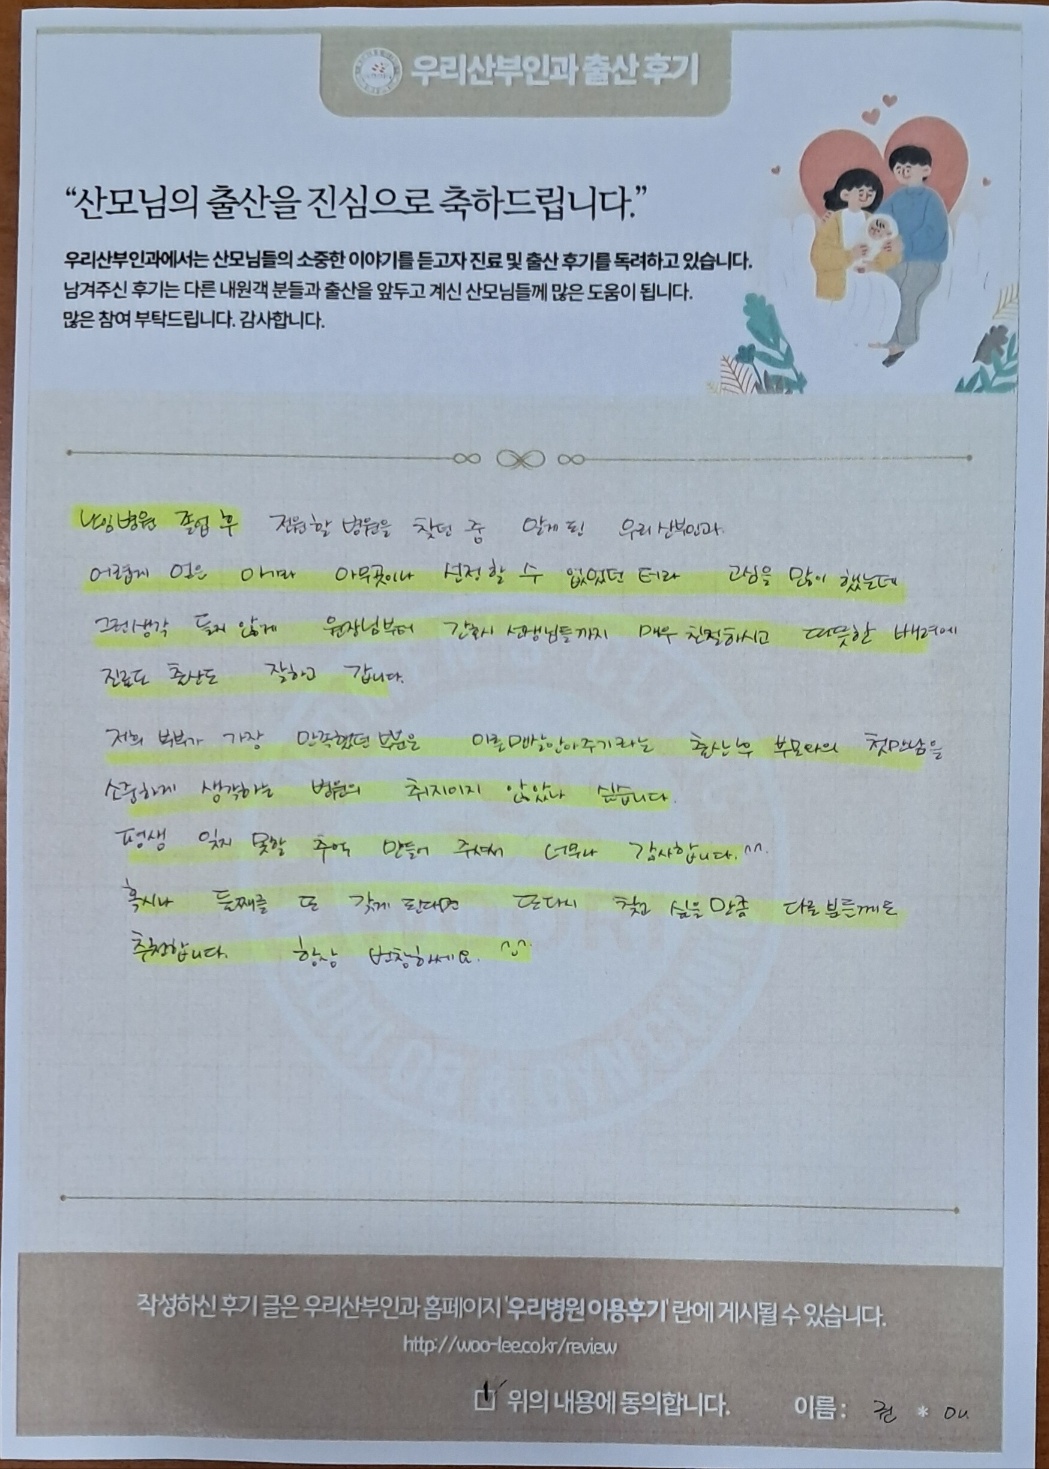 우리산부인과 출산 후기
“산모님의 출산을 진심으로 축하드립니다.”
우리산부인과에서는 산모님들의 소중한 이야기를 듣고자 진료 및 출산 후기를 독려하고 있습니다.
남겨주신 후기는 다른 내원객 분들과 출산을 앞두고 계신 산모님들께 많은 도움이 됩니다.
많은 참여 부탁드립니다. 감사합니다.
난임병원 졸업 후 전원할 병원을 찾던 중 알게된 우리산부인과.
어렵게 얻은 아기라 아무곳이나 선정할 수 없었던 터라 고심을 많이 했는데
그런생각 들지 않게 원장님부터 간호사 선생님들까지 매우 친절하시고 따뜻한 배려에
진료도 출산도 잘하고 갑니다.
저희 부부가 가장 만족했던 부분은 출산후 부모와의 첫만남을
소중하게 생각하는 병원의 취지이지 않았나 싶습니다.
평생 잊지 못할 추억 만들어 주셔서 너무나 감사합니다.^^.
혹시나 둘째를 또 갖게 된다면 또다시 찾고 싶을만큼 다른분들께도
추천합니다. 항상 번창하세요. ^^
WOORI OB & GYN CLINIC
작성하신 후기 글은 우리산부인과 홈페이지 '우리병원 이용후기' 란에 게시될 수 있습니다.
http://woo-lee.co.kr/review
위의 내용에 동의합니다. 이름 : 권 *